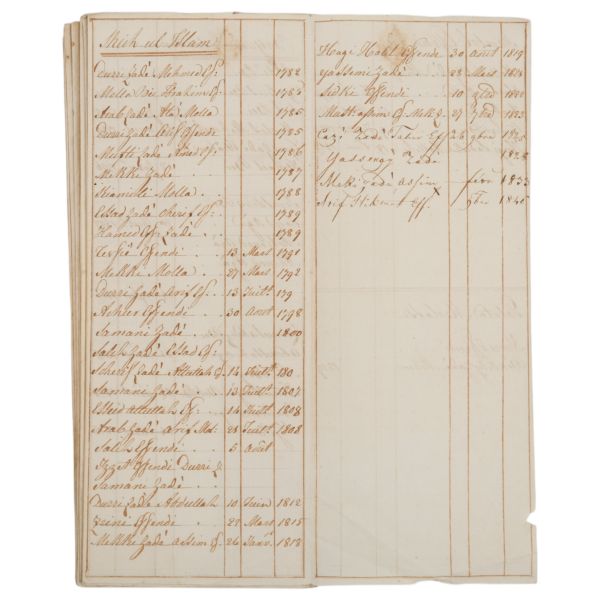 Meih ul Islam
Durri Zadè Mehmed Ef: 1782
Molla Bie Ibrahim Ef: 1785
Arab Zadè Ata Molla 1785
Durri Zadè Arif Effendi 1785
Mufti Zadè Ahmed Ef: 1786
Mekki Zadè 1787
Kiamili Molla 1788
Essad Zadè Cherif Ef: 1789
Hamid Ef: Zadè 1789
Tefsié Effendi 13 Mars 1791
Mekki Molla 27 Mars 1792
Durri Zadè Arif Ef. 13 Juill: 179
Achier Effendi 30 Aout 1798
Samani Zadè 1800
Salih Zadè Essad Ef:
Scherif Zadè Attullah Ef 14 Juill: 180
Samani Zadè 13 Juill: 1807
Essad Attullah Ef: 14 Juill: 1808
Arab Zadè Arif Mol: 28 Juill: 1808
Salih Effendi 5 Août
Izzet Effendi Durri Z
Samani Zadè
Durri Zadè Abdullah 10 Juin 1812
Zeini Effendi 28 Mars 1815
Mekki Zadè Assim Ef. 26 Janv: 1818
Hagi Halil Effendi 30 Août 1819
Yassini Zadè 28 Mars 1818
Sidki Effendi 10 9bre 1822
Musttafsim Ef Mekk Z. 27 7bre 1823
Cazi Zadè Taher Eff 26 9bre 1825
Yassengi Zade 1828
Meki Zadè Assim fevr 1833
Arif Hikmet Eff. 9bre 1845